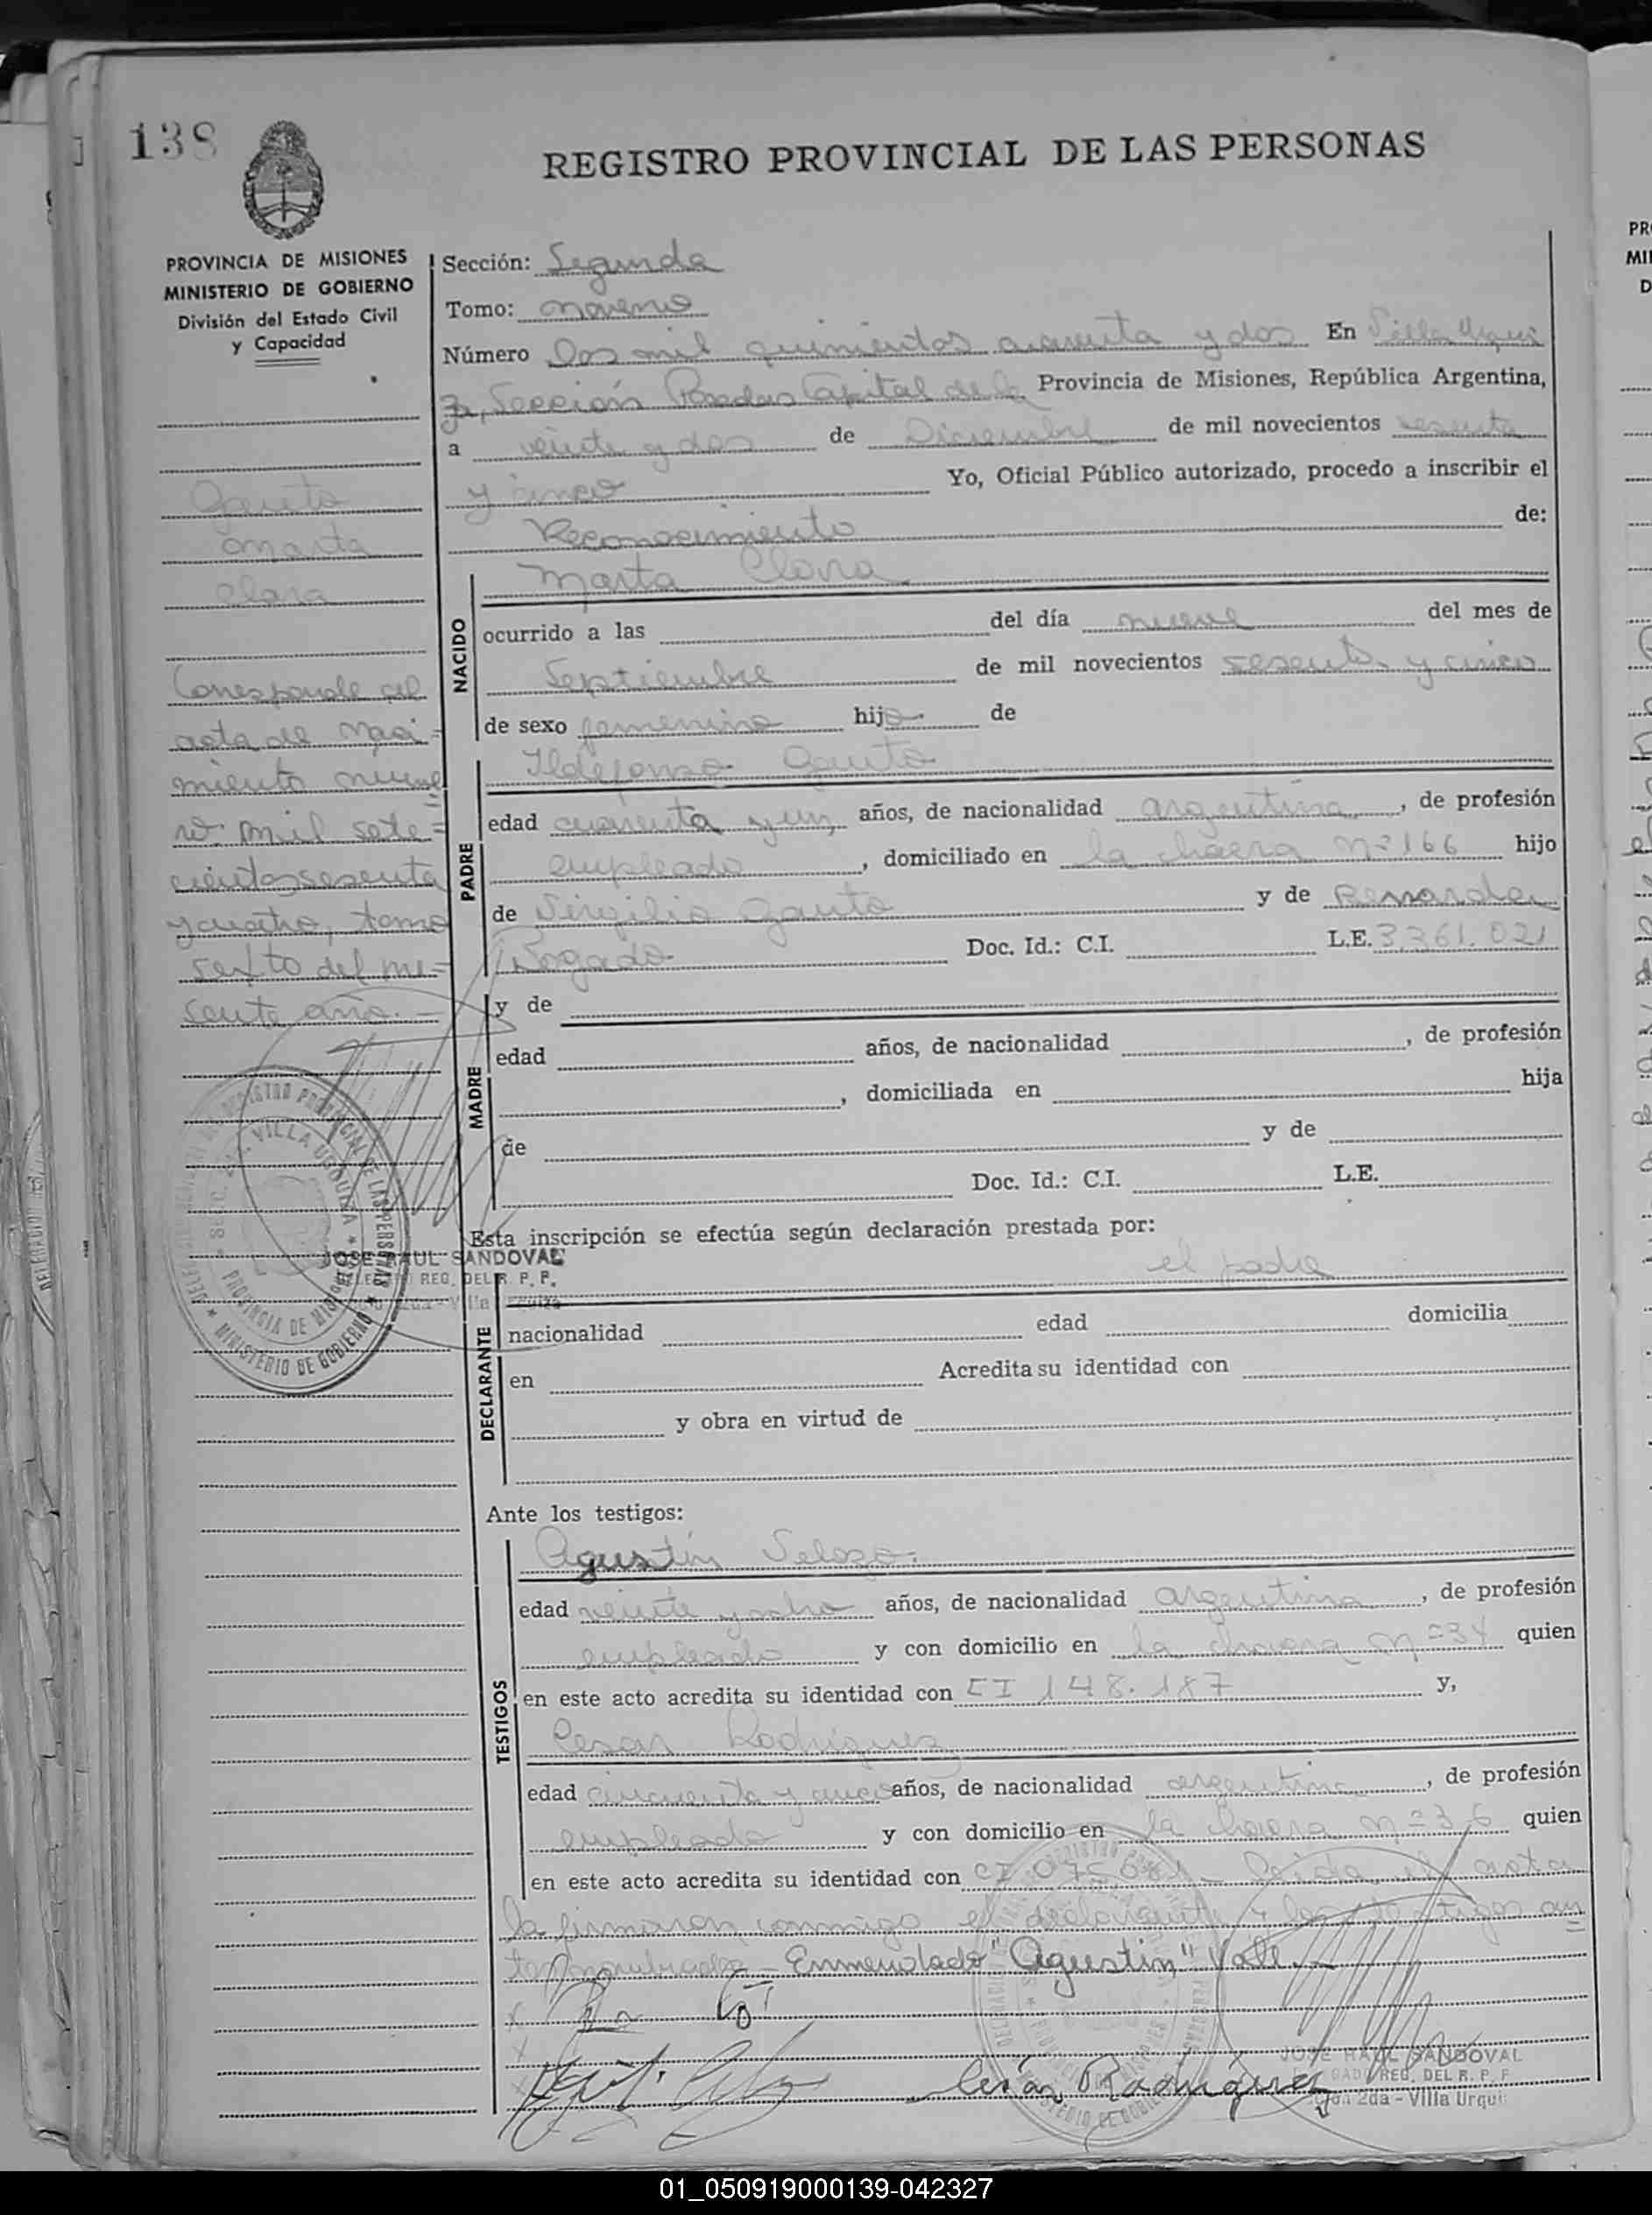 138
REGISTRO PROVINCIAL DE LAS PERSONAS
PROVINCIA DE MISIONES
MINISTERIO DE GOBIERNO
División del Estado Civil
y Capacidad
Gauto
Marta
Clara
Corresponde al
acta de naci-
miento nume=
ro: mil sete=
cientos sesenta
y cuatro, tomo
sexto del pre-
sente año.-
Sección: Segunda
Tomo: noveno
Número Dos mil quinientos cuarenta y dos En Villa Urqui
za, Sección Posadas Capital de la Provincia de Misiones, República Argentina,
a veinte y dos de Diciembre de mil novecientos sesenta
y cinco Yo, Oficial Público autorizado, procedo a inscribir el
Reconocimiento de:
NACIDO
Marta Clara
ocurrido a las del día nueve del mes de
Septiembre de mil novecientos sesenta y cinco
de sexo femenino hija de
PADRE
Ildefonso Gauto
edad cuarenta y un, años, de nacionalidad argentina, de profesión
empleado, domiciliado en la chacra nº 166 hijo
de Virgilio Gauto y de Bernarda
Doc. Id.: C.I. L.E. 3.361.021
MADRE
y de
edad años, de nacionalidad , de profesión
, domiciliada en hija
de y de
Doc. Id.: C.I. L.E.
Esta inscripción se efectúa según declaración prestada por:
el padre
DECLARANTE
nacionalidad edad domicilia
en Acredita su identidad con
y obra en virtud de
JOSE RAUL SANDOVAL
REG. DEL R. P. P.
REGISTRO PROVINCIAL DE LAS PERSONAS
VILLA URQUIZA
PROVINCIA DE MISIONES
MINISTERIO DE GOBIERNO
Ante los testigos:
TESTIGOS
Agustín Velozo.
edad veinte y ocho años, de nacionalidad argentina, de profesión
empleado y con domicilio en la chacra nº 34 quien
en este acto acredita su identidad con CI 148.187 y,
Cesar Rodriguez
edad cincuenta y años, de nacionalidad argentina, de profesión
empleado y con domicilio en la chacra nº 36 quien
en este acto acredita su identidad con CI Leida el acta
la firmaron conmigo el declarante y los testigos an
tes nombrados - Enmendado "Agustin" Vale.-
César Rodríguez
JOSE RAUL SANDOVAL
REG. DEL R. P. P.
2da - Villa Urqui
01_050919000139-042327